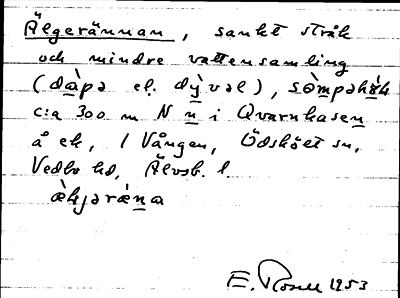 Älgerännan, sankt stråk
och mindre vattensamling
(dàpa el. dỳvəl), sòmpəhåk
c:a 300 m N n i Qvarnhasen
å ek, 1 Vången, Ödskölt sn,
Vedbo hd, Älvsb. l.
æ̀ljəræna
E. Rosell 1953